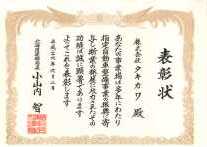 表彰状
株式会社タキカワ 殿
あなたの事業場は多年にわたり
指定自動車整備事業の振興に寄
与し斯業の発展に尽力されたその
功績は誠に顕著であります
よってこれを表彰します
平成二十六年六月二日
小山内 智